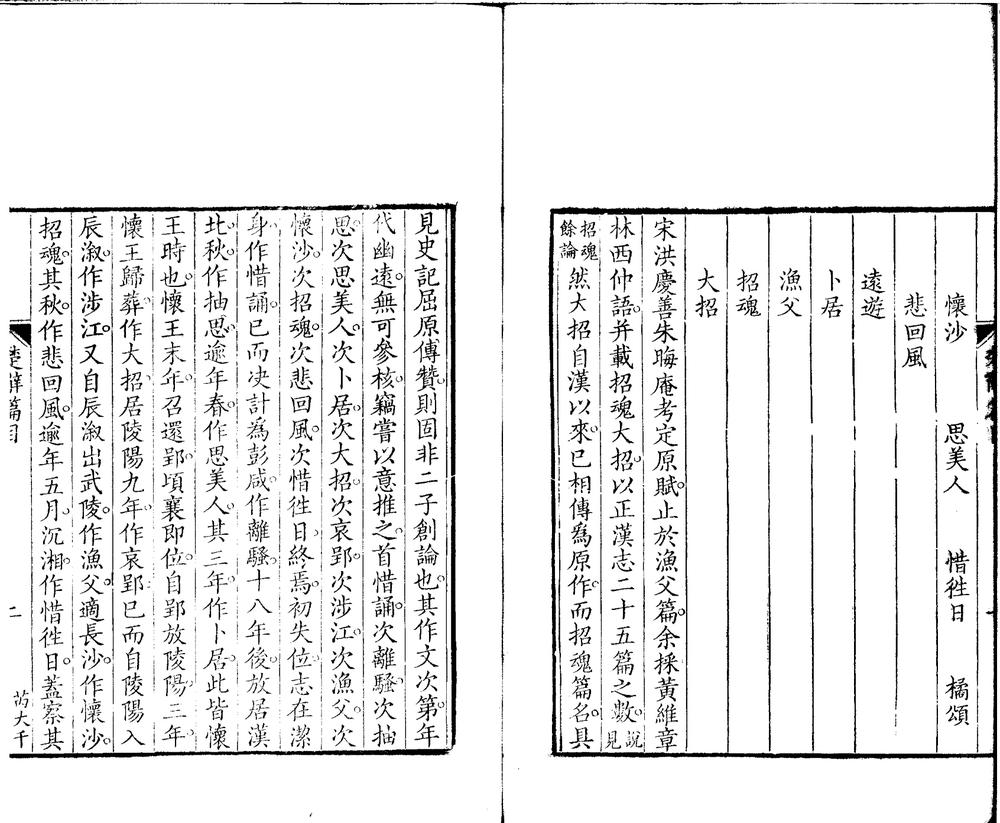 懷沙　思美人　惜徃日　橘頌
悲回風
遠遊
卜居
漁父
招魂
大招
宋洪慶善朱晦庵考定原賦止於漁父篇。余採黃維章
林西仲語。并載招魂大招。以正漢志二十五篇之數。說見
招魂餘論然大招自漢以來。已相傳爲原作。而招魂篇名。具
見史記屈原傳贊。則固非二子創論也。其作文次第。年
代幽遠。無可參核。竊嘗以意推之。首惜誦。次離騷。次抽
思。次思美人。次卜居。次大招。次哀郢。次涉江。次漁父。次
懷沙。次招魂。次悲回風。次惜徃日。終焉。初失位。志在潔
身。作惜誦。已而决計爲彭咸。作離騷。十八年後。放居漢
北。秋。作抽思。逾年春。作思美人。其三年。作卜居。此皆懷
王時也。懷王末年。召還郢。頃襄即位。自郢放陵陽。三年。
懷王歸葬。作大招。居陵陽九年。作哀郢。已而自陵陽入
辰漵。作涉江。又自辰漵出武陵。作漁父。適長沙。作懷沙。
招魂。其秋。作悲回風。逾年五月。沉湘。作惜徃日。蓋察其
楚辭篇目
二
芮大千